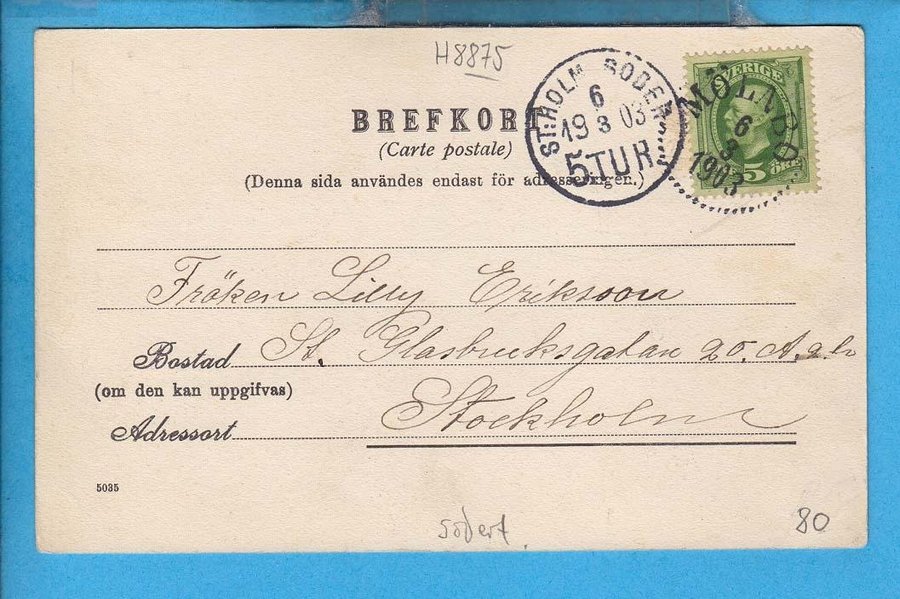 H8875
SVERIGE
5 ÖRE
MÖLNBO
6
3
1903
ST:HOLM SÖDER
6
19 3 03
5TUR
BREFKORT
(Carte postale)
(Denna sida användes endast för adresseringen.)
Fröken Lilly Eriksson
Bostad St. Glasbruksgatan 20. A. 2 tr
(om den kan uppgifvas)
Stockholm
Adressort
5035
södert.
80